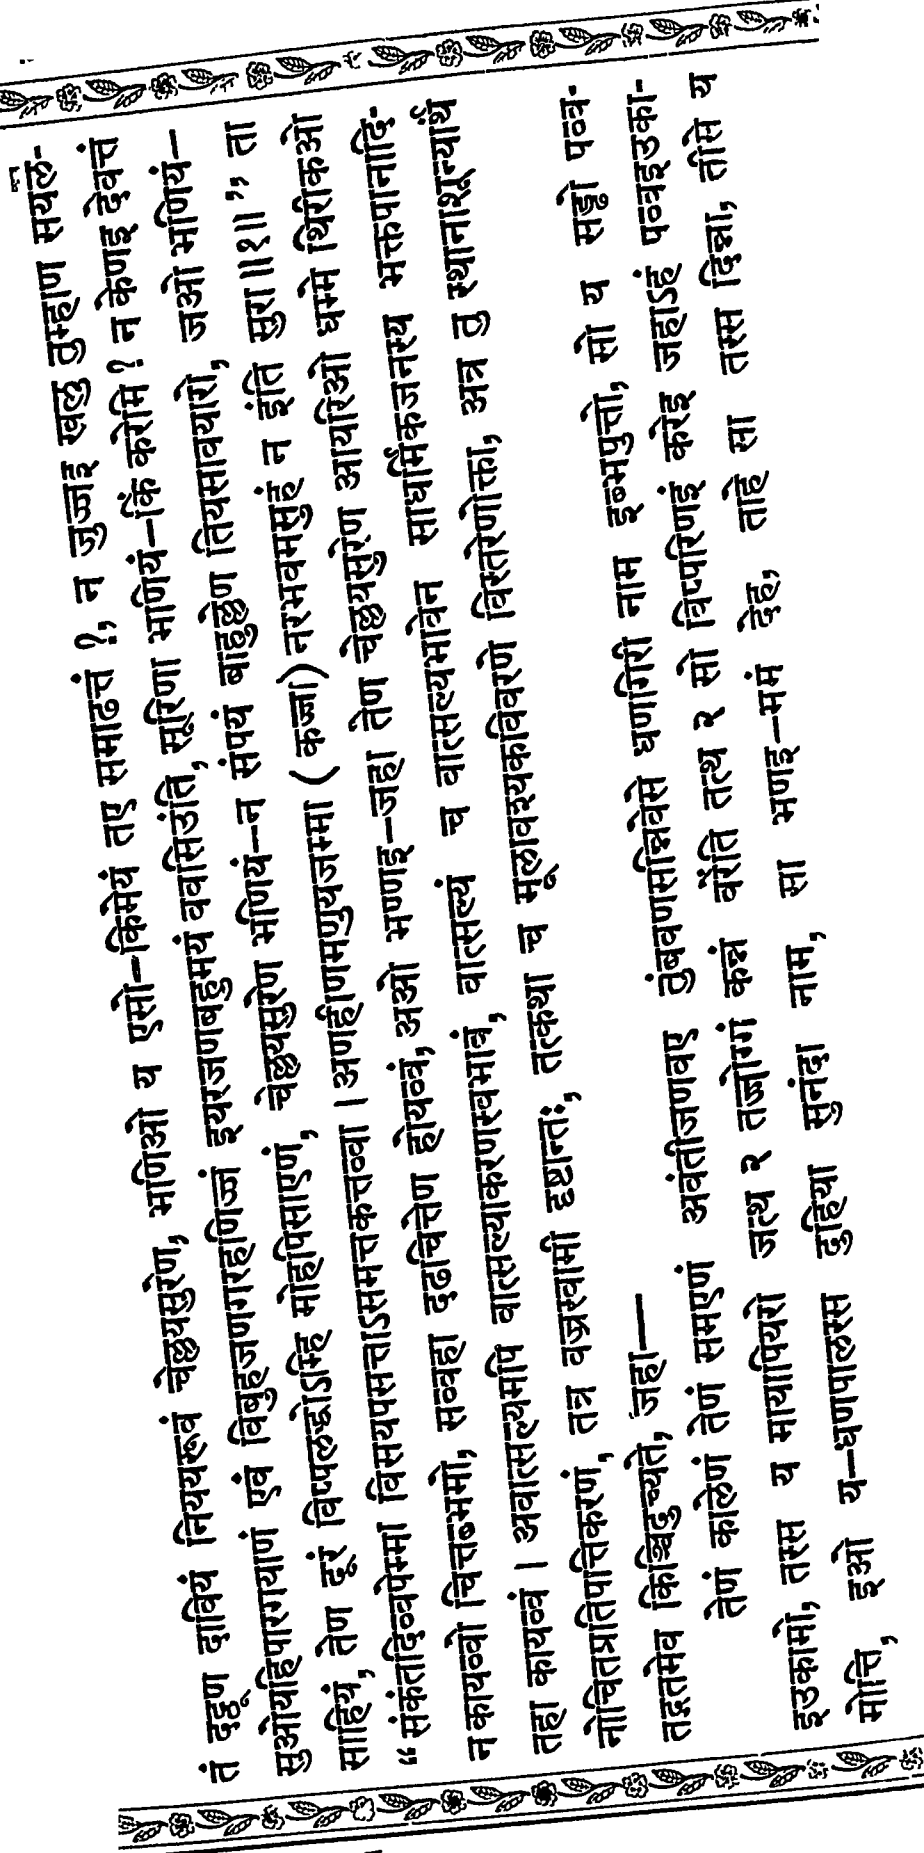 तं दट्ठूण दावियं निययरूवं चेल्लयसुरेण, भणिओ य एसो–किमेयं तए समाढत्तं ?, न जुज्जइ खलु तुम्हाण सयल-
सुओयहिपारगयाणं एवं विबुहजणगरहणिज्जं इयरजणबहुमयं ववसिउंति, सूरिणा भणियं–किं करेमि ? न केणइ देवत्तं
साहियं, तेण दूरं विप्पलद्धोऽम्हि मोहपिसाएणं, चेल्लयसुरेण भणियं–न संपयं बाहुल्लेण तियसावयारो, जओ भणियं–
“संकंतदिव्वपेम्मा विसयपसत्ताऽसमत्तकत्तव्वा । अणहीणमणुयजम्मा (कज्जा) नरभवमसुहं न इंति सुरा ॥१॥” ता
न कायव्वो चित्तब्भमो, सव्वहा दढचित्तेण होयव्वं, अओ भण्णइ–जहा तेण चेल्लयसुरेण आयरिओ धम्मे थिरीकओ
तहा कायव्वं । अवात्सल्यमपि वात्सल्याकरणस्वभावं, वात्सल्यं च वात्सल्यभावेन साधर्मिकजनस्य भक्तपानादि-
नोचितप्रतिपत्तिकरणं, तत्र वज्रस्वामी दृष्टान्तः, तत्कथा च मूलावश्यकविवरणे विस्तरेणोक्ता, अत्र तु स्थानाशून्यार्थं
तद्गतमेव किञ्चिदुच्यते, जहा—
तेणं कालेणं तेणं समएणं अवंतीजणवए तुंबवणसन्निवेसे धणगिरी नाम इब्भपुत्तो, सो य सड्ढो पव्व-
इउकामो, तस्स य मायापियरो जत्थ २ तज्जोग्गं कन्नं वरेंति तत्थ २ सो विप्परिणइं करेइ जहाऽहं पव्वइउका-
मोत्ति, इओ य–धणपालस्स दुहिया सुनंदा नाम, सा भणइ–ममं देह, ताहे सा तस्स दिन्ना, तीसे य